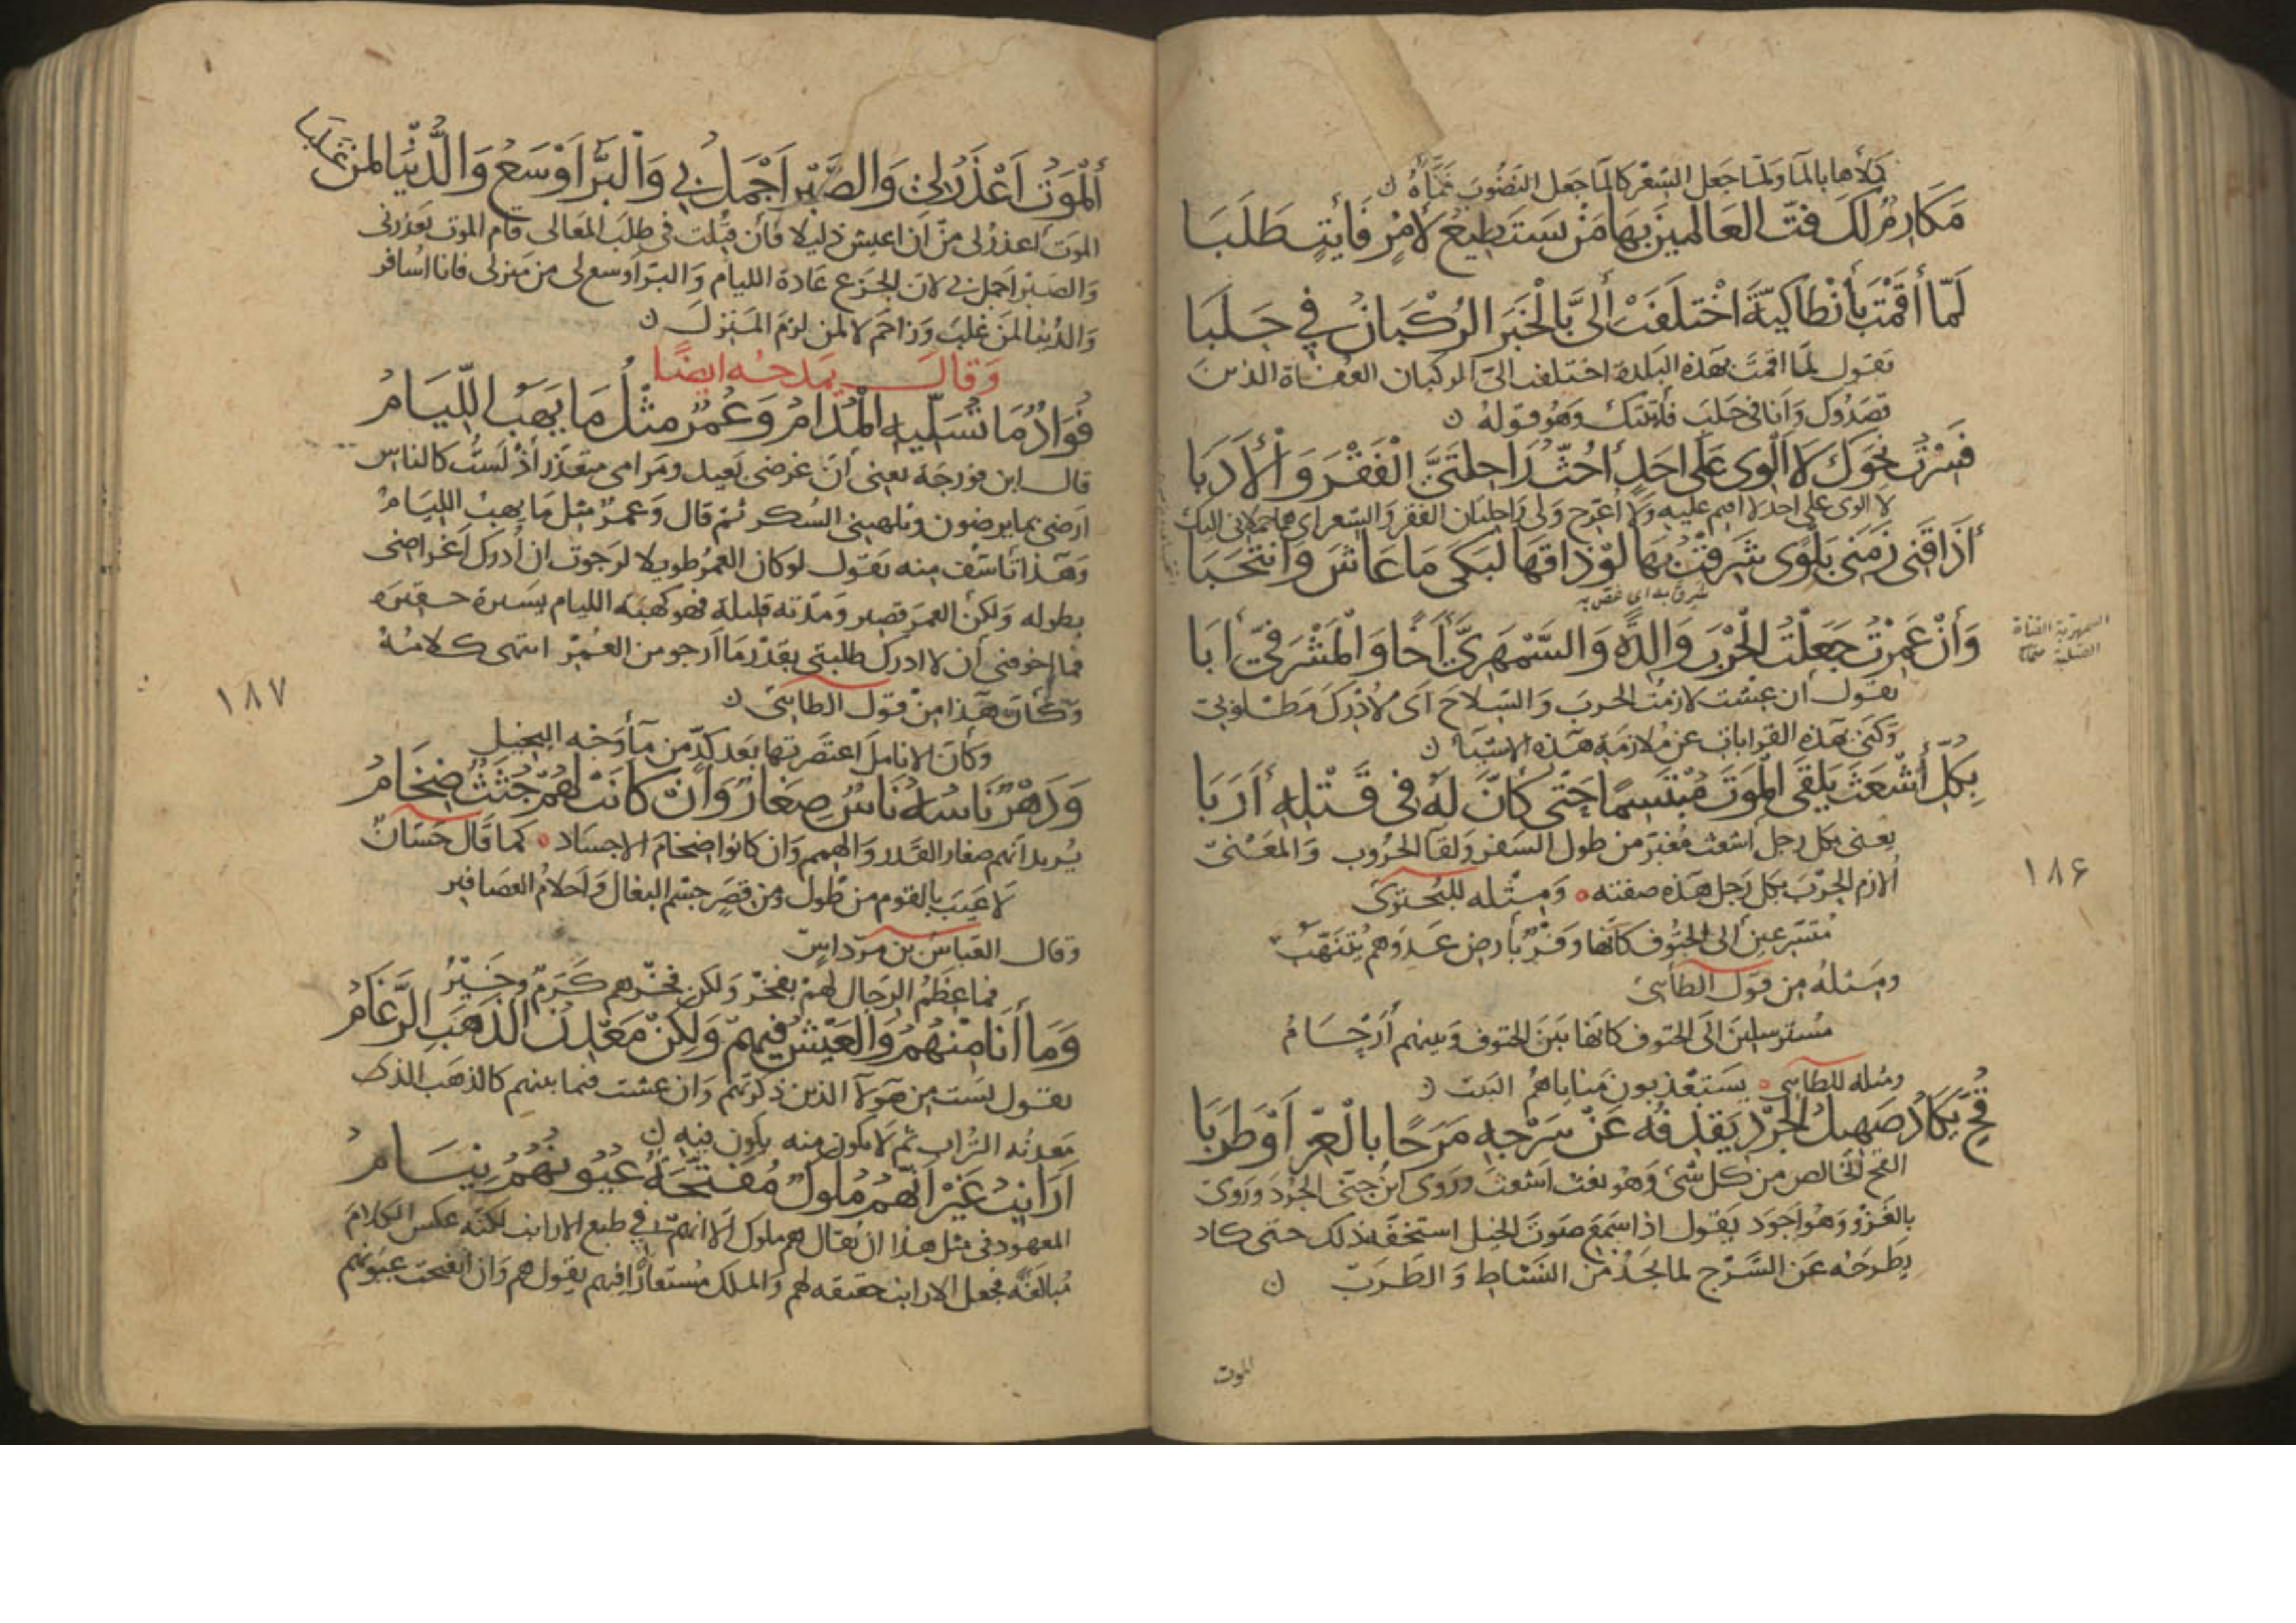 كلأها بالما ولما جعل الشعر كالما جعل النضوب
مَكَارِمٌ لَكَ فُتَّ العَالمينَ بهَا مَنْ يَستَطيعُ لأمْرٍ فَايتٍ طَلَبَا
لَمّا أقَمْتَ بأنْطاكيّةَ اخْتلَفَتْ ألىَّ بالْخَبَر الرُكْبَانُ في حَلَبَا
تقول لما اقمت بهذه البلدة اختلفت الىّ الركبان العفاة الذين
قصدوك وَانا في حلبَ فأتيتك وَهُو قوله ن
فَسِرْتُ نحوَكَ لا ألْوى عَلَى احَدٍ أحُثُّ رَاحِلَتَيَّ الْفَقْرَ وَالْأدَبَا
لا الوى على احد لا اقيم عليه ولا أعرّج ولى راحلتان الفقر والشعر اى هما حملانى اليك
أذَاقَنى زَمَنى بَلْوَى شَرِقْتُ بهَا لوْ ذَاقهَا لَبَكَى مَا عَاشَ وَانتَحَبَا
شرق به اى غص به
وَأنْ عَمِرْتُ جَعَلْتُ الْحَرْبَ وَالدةً وَالسَّمْهَرىَّ أخًا وَالْمَشْرَفيَّ أبَا
السمهرية القناة
الصلبة
يقول ان عشت لازمت الحرب وَ السلاح اى لأدرك مطلوبى
وكنى بهذه القرابات عن ملازمة هذه الاشيا ن
بكلّ أشْعَثَ يَلقَى الْمَوتَ مُبْتَسِمًا حَتّى كأنَّ لَهُ فى قَتْلِهِ أرَبَا
يعنى بكل رجل اشعث مغبرّ من طول السفر ولقآ الحروب وَالمعنى
ألازم الحرب بكل رجل هذه صفته ۰ وَمثله للبحترى
مُتَسَرّعينَ ألى الحتوف كأنّها وَفْرٌ بأرض عَدوهم يُتنهّبُ
ومثله من قول الطائى
مُسترسلين الى الحتوف كانّها بَين الحتوف وَبينهم أرْحَامُ
ومثله للطائى ۰ يستعذبون مناياهُم البيت ن
قُحٍّ يَكَادُ صَهيلُ الْجُرْدِ يَقذِفُه عَنْ سَرْجِه مَرَحًا بالْعِزّ أوْ طَرَبَا
القح الخالص من كل شئ وَهُو نعت اشعث وروى ابن جنى الجُرد وروى
بالغزو وَهُو اجود يقول اذا سمع صوت الخيل استخفه ذلك حتى كاد
يطرحه عن السَّرْج لما يجد من النشاط وَ الطرب ن
١٨۶
الموت
ألْمَوتُ أعْذَرُ لى وَالصَّبْرُ أجْمَلُ بى وَالْبَرُّ أوْسَعُ وَالدُّنْيَا لمَنْ غَلَبَا
الموت اعذر لى من أن اعيش ذليلا فان قتلت فى طلب المعالى قام الموت بعذرنى
وَالصبر اجمل بى لان الجزع عادة الليام وَ البرّ أوسع لى من منزلى فانا اُسافر
وَالدُنيا لمن غلب وَزاحم لا لمن لزم المنزل ن
وَقال يمدحه ايضًا
فُوَادٌ مَا تُسَلّيه الْمُدَامُ وَعُمْرٌ مثْلُ مَا يَهَبُ اللّيَامُ
قال ابن فورجة يعنى أن غرضى بعيد ومرامى متعذر أذ لستُ كالناس
ارضى بما يرضون ويلهينى السكر ثم قال وَعمرٌ مثل ما يهبُ الليام
وَهذا تأسّف منه يقول لو كان العمرُ طويلا لرجوت ان أدرك أغراضى
بطوله وَلكن العمر قصير وَمدّته قليلة فهو كهبة الليام يسيرة حقيرة
فما اخوفنى أن لا ادرك طلبتى بقدر ما أرجو من العُمر انتهى كلامه
وَكأن هَذا من قول الطائى ن
وَكأنّ الانامل اعتصرتها بَعد كدّ من مآ وَجه البخيل
وَدَهْرٌ نَاسُهُ نَاسٌ صِغَارٌ وَأنْ كَانَتْ لهُمْ جُثَثٌ ضِخَامُ
يُريد أنهم صغار القدر وَالهمم وَان كانوا ضخام الاجساد ۰ كما قال حَسّان
لا عَيبَ بالقوم من طُول ومن قِصَرٍ جسم البغال وَاحلامُ العصافير
وقال العَباس بن مرداس
فما عِظَمُ الرجال لهم بفخرٍ وَلكن فخرهم كَرَمٌ وخيرُ
وَمَا أنَا مِنْهُمُ وَالعَيْشُ فيهمْ وَلكنْ مَعْدِنُ الذَهَبِ الرَّغَامُ
يقول لست من هَولآ الذين ذكرتهم وَان عشت فيما بينهم كالذهب الذى
معدنه التراب ثم لا يكون منه يكون فيه ن
أرَانبُ غَيْرَ أنّهُمُ مُلُوكٌ مُفَتَّحَةٌ عُيُونُهُمُ نِيَامُ
المعهود فى مثل هذا ان يقال هم ملوك الا انهم فى طبع الارانب لكنه عكس الكلام
مُبالغة فجعل الارانب حقيقه لهم وَالملك مُستعارًا فيهم يقول هم وَان انفتحت عيونهم
١٨٧